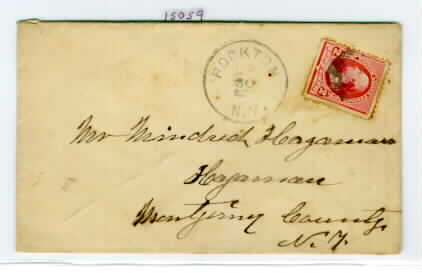 15059
ROCKTON
30
N.Y.
Mr Mindred Hagaman
Hagaman
Montgomery County
N.Y.